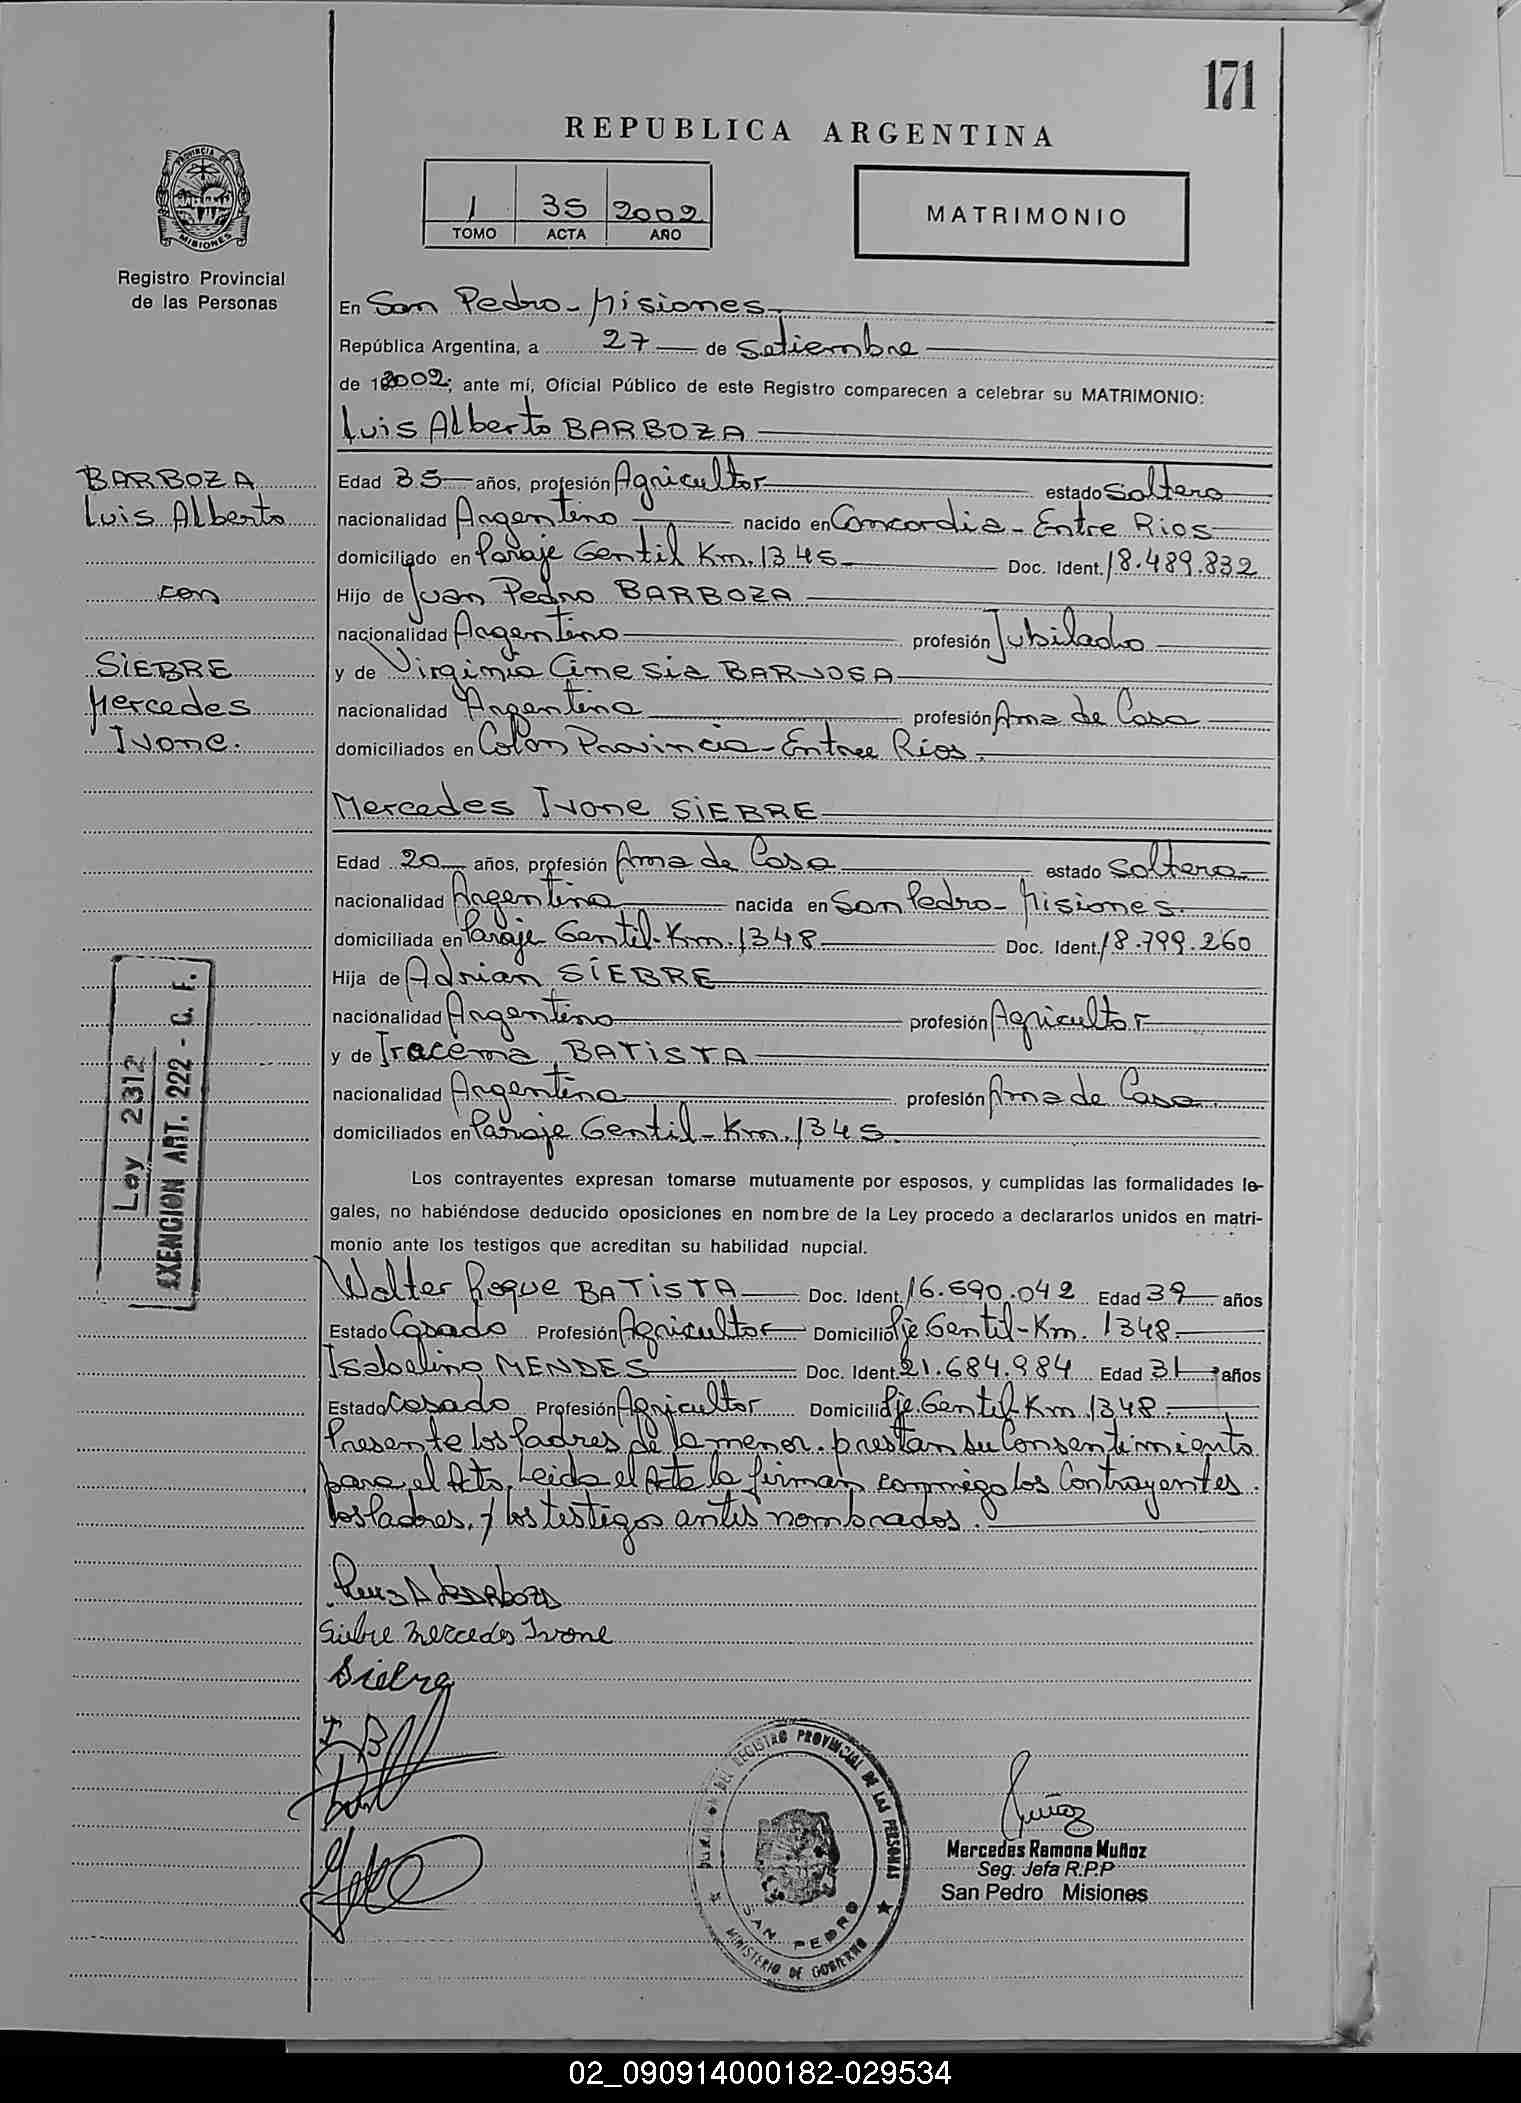 171
REPUBLICA ARGENTINA
1 35 2002
TOMO ACTA AÑO
MATRIMONIO
PROVINCIA DE MISIONES
Registro Provincial
de las Personas
En San Pedro - Misiones
República Argentina, a 27 de Setiembre
de 2002; ante mí, Oficial Público de este Registro comparecen a celebrar su MATRIMONIO:
Luis Alberto BARBOZA
BARBOZA
Luis Alberto
con
SIEBRE
Mercedes
Ivone.
Edad 35 años, profesión Agricultor estado Soltero
nacionalidad Argentino nacido en Concordia - Entre Rios
domiciliado en Paraje Gentil Km. 1345 Doc. Ident. 18.489.832
Hijo de Juan Pedro BARBOZA
nacionalidad Argentino profesión Jubilado
y de Virginia Cinesia BARJOSA
nacionalidad Argentina profesión Ama de Casa
domiciliados en Colon Provincia - Entre Rios.
Mercedes Ivone SIEBRE
Edad 20 años, profesión Ama de Casa estado Soltera
nacionalidad Argentina nacida en San Pedro - Misiones.
domiciliada en Paraje Gentil - Km. 1348 Doc. Ident. 18.799.260
Hija de Adrian SIEBRE
nacionalidad Argentino profesión Agricultor
y de Iracema BATISTA
nacionalidad Argentina profesión Ama de Casa.
domiciliados en Paraje Gentil - Km. 1345
Ley 2312
EXENCION ART. 222 - C. F.
Los contrayentes expresan tomarse mutuamente por esposos, y cumplidas las formalidades le-
gales, no habiéndose deducido oposiciones en nombre de la Ley procedo a declararlos unidos en matri-
monio ante los testigos que acreditan su habilidad nupcial.
Walter Roque BATISTA Doc. Ident. 16.590.042 Edad 39 años
Estado Casado Profesión Agricultor Domicilio Pje Gentil - Km. 1348.
Isabelino MENDES Doc. Ident. 21.684.984 Edad 31 años
Estado Casado Profesión Agricultor Domicilio Pje. Gentil - Km 1348.
Presente los Padres de la menor. prestan su Consentimiento
para el Acto. Leida el Acta la firman conmigo los Contrayentes.
los Padres, y los testigos antes nombrados.
Luis A Barboza
Siebre Mercedes Ivone
Siebre
I B
DEL REGISTRO PROVINCIAL DE LAS PERSONAS
SAN PEDRO
MINISTERIO DE GOBIERNO
Muñoz
Mercedes Ramona Muñoz
Seg. Jefa R.P.P
San Pedro Misiones
02_090914000182-029534